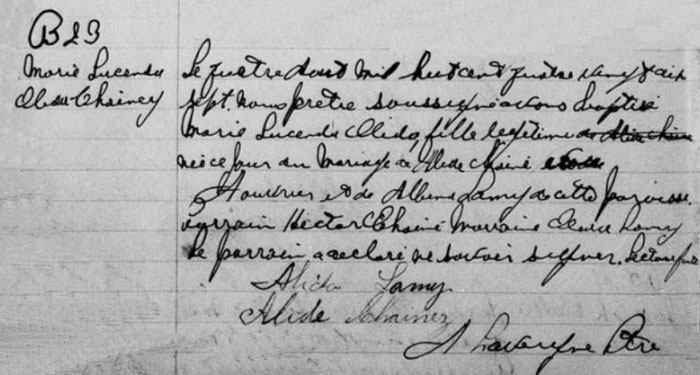 B 23
Marie Lucenda
Alida Chainey
Le quatre d'août mil huit cent quatre vingt dix
sept nous prêtre soussigné avons baptisé
Marie Lucenda Alida, fille légitime
née ce jour du mariage de Alide Chainé
et de Albena Lamy de cette paroisse
parrain Hector Chainé Marraine Alida Lamy
le parrain a déclaré ne savoir signer. Lecture faite
Alida Lamy
Alide Chainez
Ptre